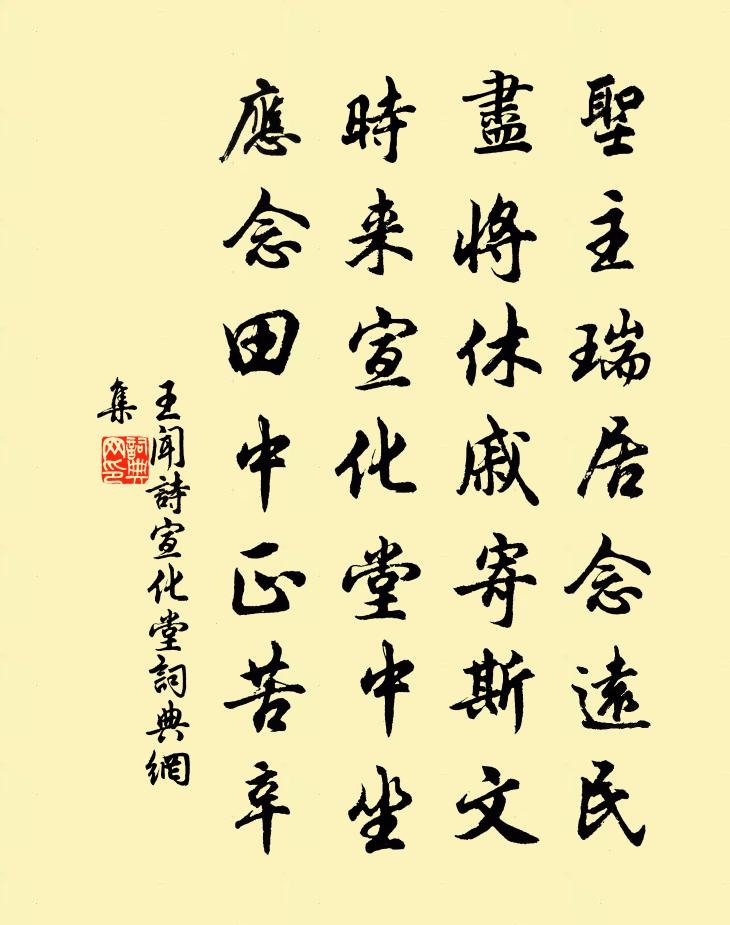 聖主瑞居念遠民
盡將休戚寄斯文
時来宣化堂中坐
應念田中正苦辛
王聞詩宣化堂詞典網
集
詞典
网印